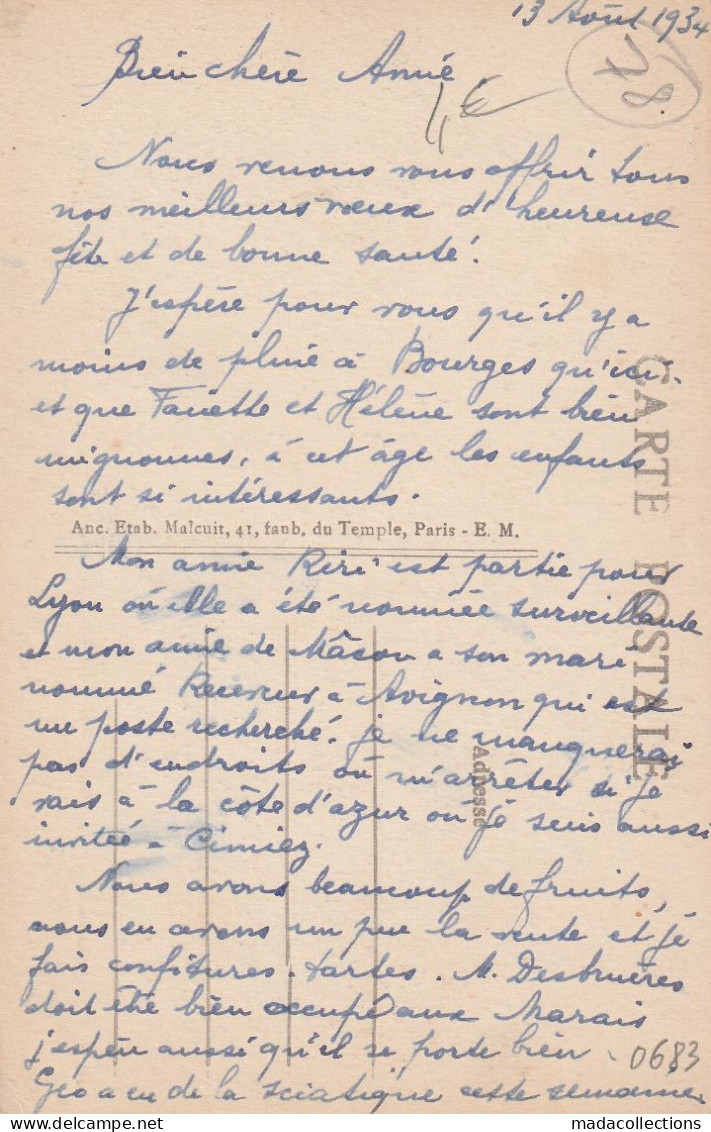 13 Août 1934
78
Bien chère Amie
4€
Nous venons vous offrir tous
nos meilleurs vœux d'heureuse
fête et de bonne santé!
J'espère pour vous qu'il y a
moins de pluie à Bourges qu'ici
et que Fanette et Hélène sont bien
mignonnes, à cet âge les enfants
sont si intéressants.
Anc. Etab. Malcuit, 41, faub. du Temple, Paris - E. M.
Mon amie Riri est partie pour
Lyon où elle a été nommée surveillante
et mon amie de Mâcon a son mari
nommé Receveur à Avignon qui est
un poste recherché. je ne manquerai
pas d'endroits où m'arrêter si je
vais à la côte d'azur où je suis aussi
invitée à Cimiez.
Nous avons beaucoup de fruits,
nous en avons un peu la vente et je
fais confitures. tartes. M. Desbruères
doit être bien occupé aux Marais
j'espère aussi qu'il se porte bien.
Geo a eu de la sciatique cette semaine.
0683
CARTE POSTALE
Adresse
madacollections